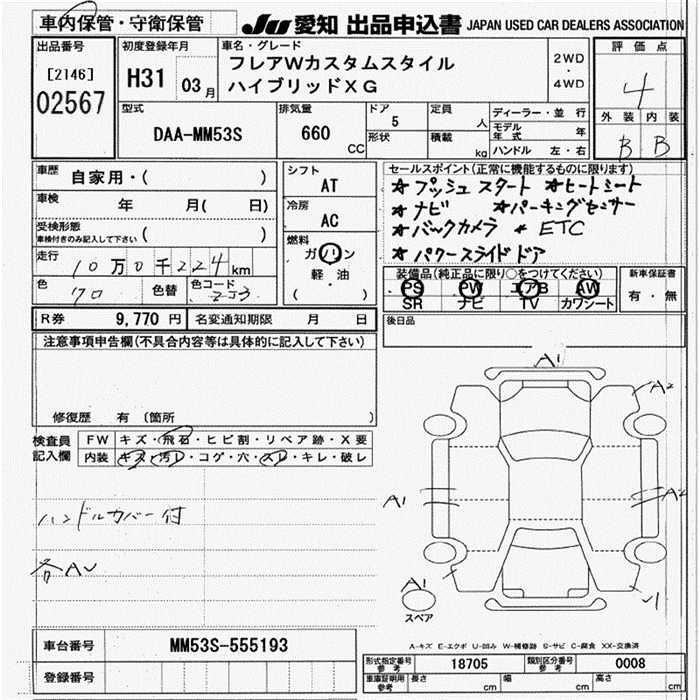 車内保管・守衛保管
JU 愛知 出品申込書 JAPAN USED CAR DEALERS ASSOCIATION
出品番号
[2146]
02567
初度登録年月
H31 03月
車名・グレード
フレアWカスタムスタイル
ハイブリッドXG
2WD
・
4WD
評価点
4
外装 内装
B B
型式
DAA-MM53S
排気量
660 CC
ドア
5
形状
定員
人
積載
kg
ディーラー・並行
モデル年式 年
ハンドル 左・右
車歴
自家用・( )
車検
年 月( 日)
受検形態
車検付きのみ記入して下さい ( )
走行 10万0千224km
色 クロ 色替 色コード
シフト
AT
冷房
AC
燃料
ガソリン
軽・油
( )
セールスポイント(正常に機能するものに限ります)
★プッシュスタート ★ヒートシート
★ナビ ★パーキングセンサー
★バックカメラ ★ETC
★パワースライドドア
装備品(純正品に限り○をつけてください)
PS PW エアB AW
SR ナビ TV カワシート
新車保証書
有・無
R券 9,770円 名変通知期限 月 日
後日品
注意事項申告欄(不具合内容等は具体的に記入して下さい)
修復歴 有 〔箇所 〕
検査員記入欄
FW キズ・飛石・ヒビ割・リペア跡・X要
内装 キズ・汚レ・コゲ・穴・スレ・キレ・破レ
ハンドルカバー付
各AU
A1
A2
A1
A2
A1
スペア
A-キズ E-エクボ U-凹み W-補修跡 S-サビ C-腐食 XX-交換済
車台番号 MM53S-555193
登録番号
形式指定番号 参考 18705 類別区分番号 参考 0008
車庫証明用 参考 長さ cm 幅 cm 高さ cm